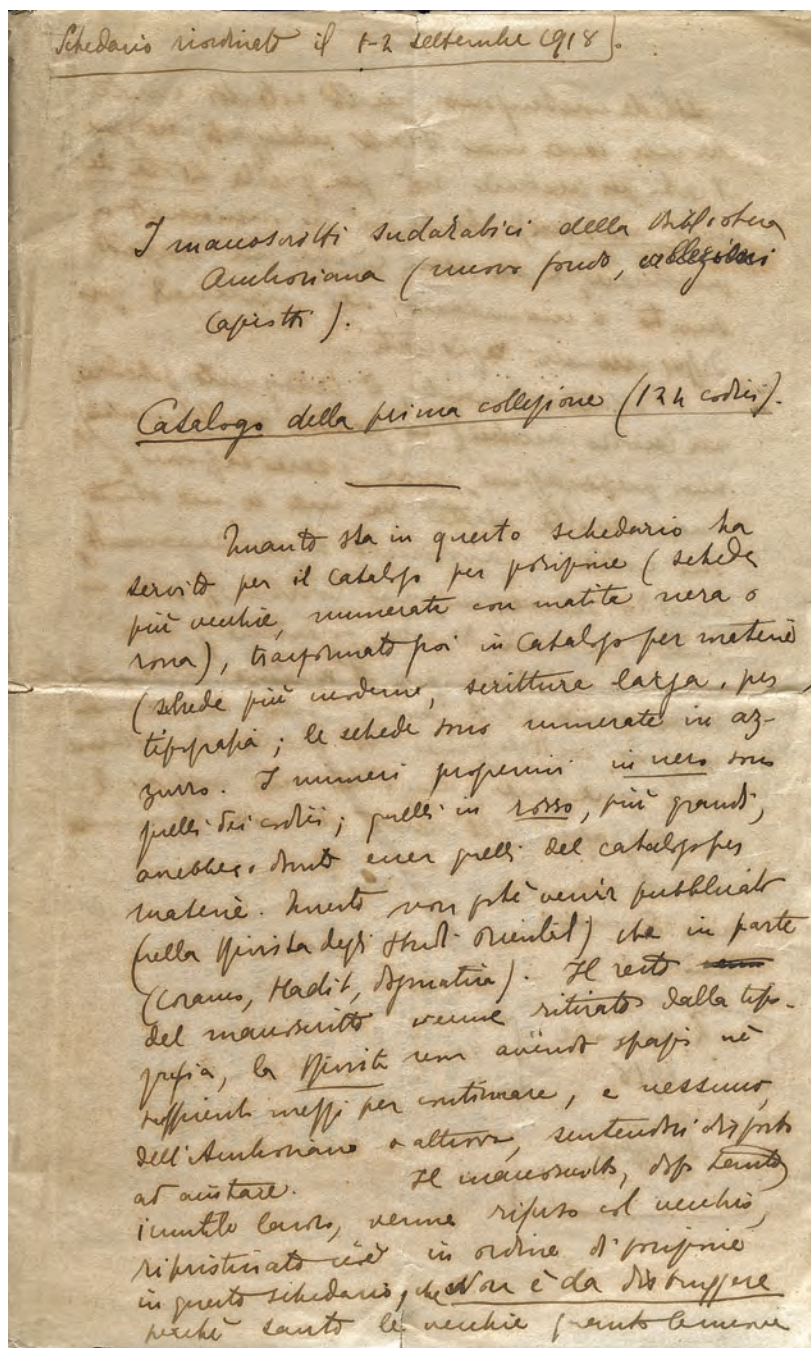 Schedario riordinato il 1-2 settembre 1918.
I manoscritti sudarabici della Biblioteca
Ambrosiana (nuovo fondo, collezioni
Caprotti).
Catalogo della prima collezione (124 codici).
Quanto sta in questo schedario ha
servito per il catalogo per posizione (schede
più vecchie, numerate con matita nera o
rossa), trasformato poi in catalogo per materie
(schede più moderne, scrittura larga, per
tipografia; le schede sono numerate in az-
zurro. I numeri progressivi in nero sono
quelli dei codici; quelli in rosso, più grandi,
avrebbero dovuto esser quelli del catalogo per
materie. Questo non potè venir pubblicato
(nella Rivista degli Studi Orientali) che in parte
(Corano, Hadit, dogmatica). Il resto
del manoscritto venne ritirato dalla tipo-
grafia, la Rivista non avendo spazio nè
sufficienti mezzi per continuare, e nessuno,
dell'Ambrosiana o altrove, sentendosi disposto
ad aiutare. Il manoscritto, dopo tanto
inutile lavoro, venne rifuso col vecchio,
ripristinato cioè in ordine di posizione
in questo schedario, che Non è da distruggere
perchè tanto le vecchie quanto le nuove